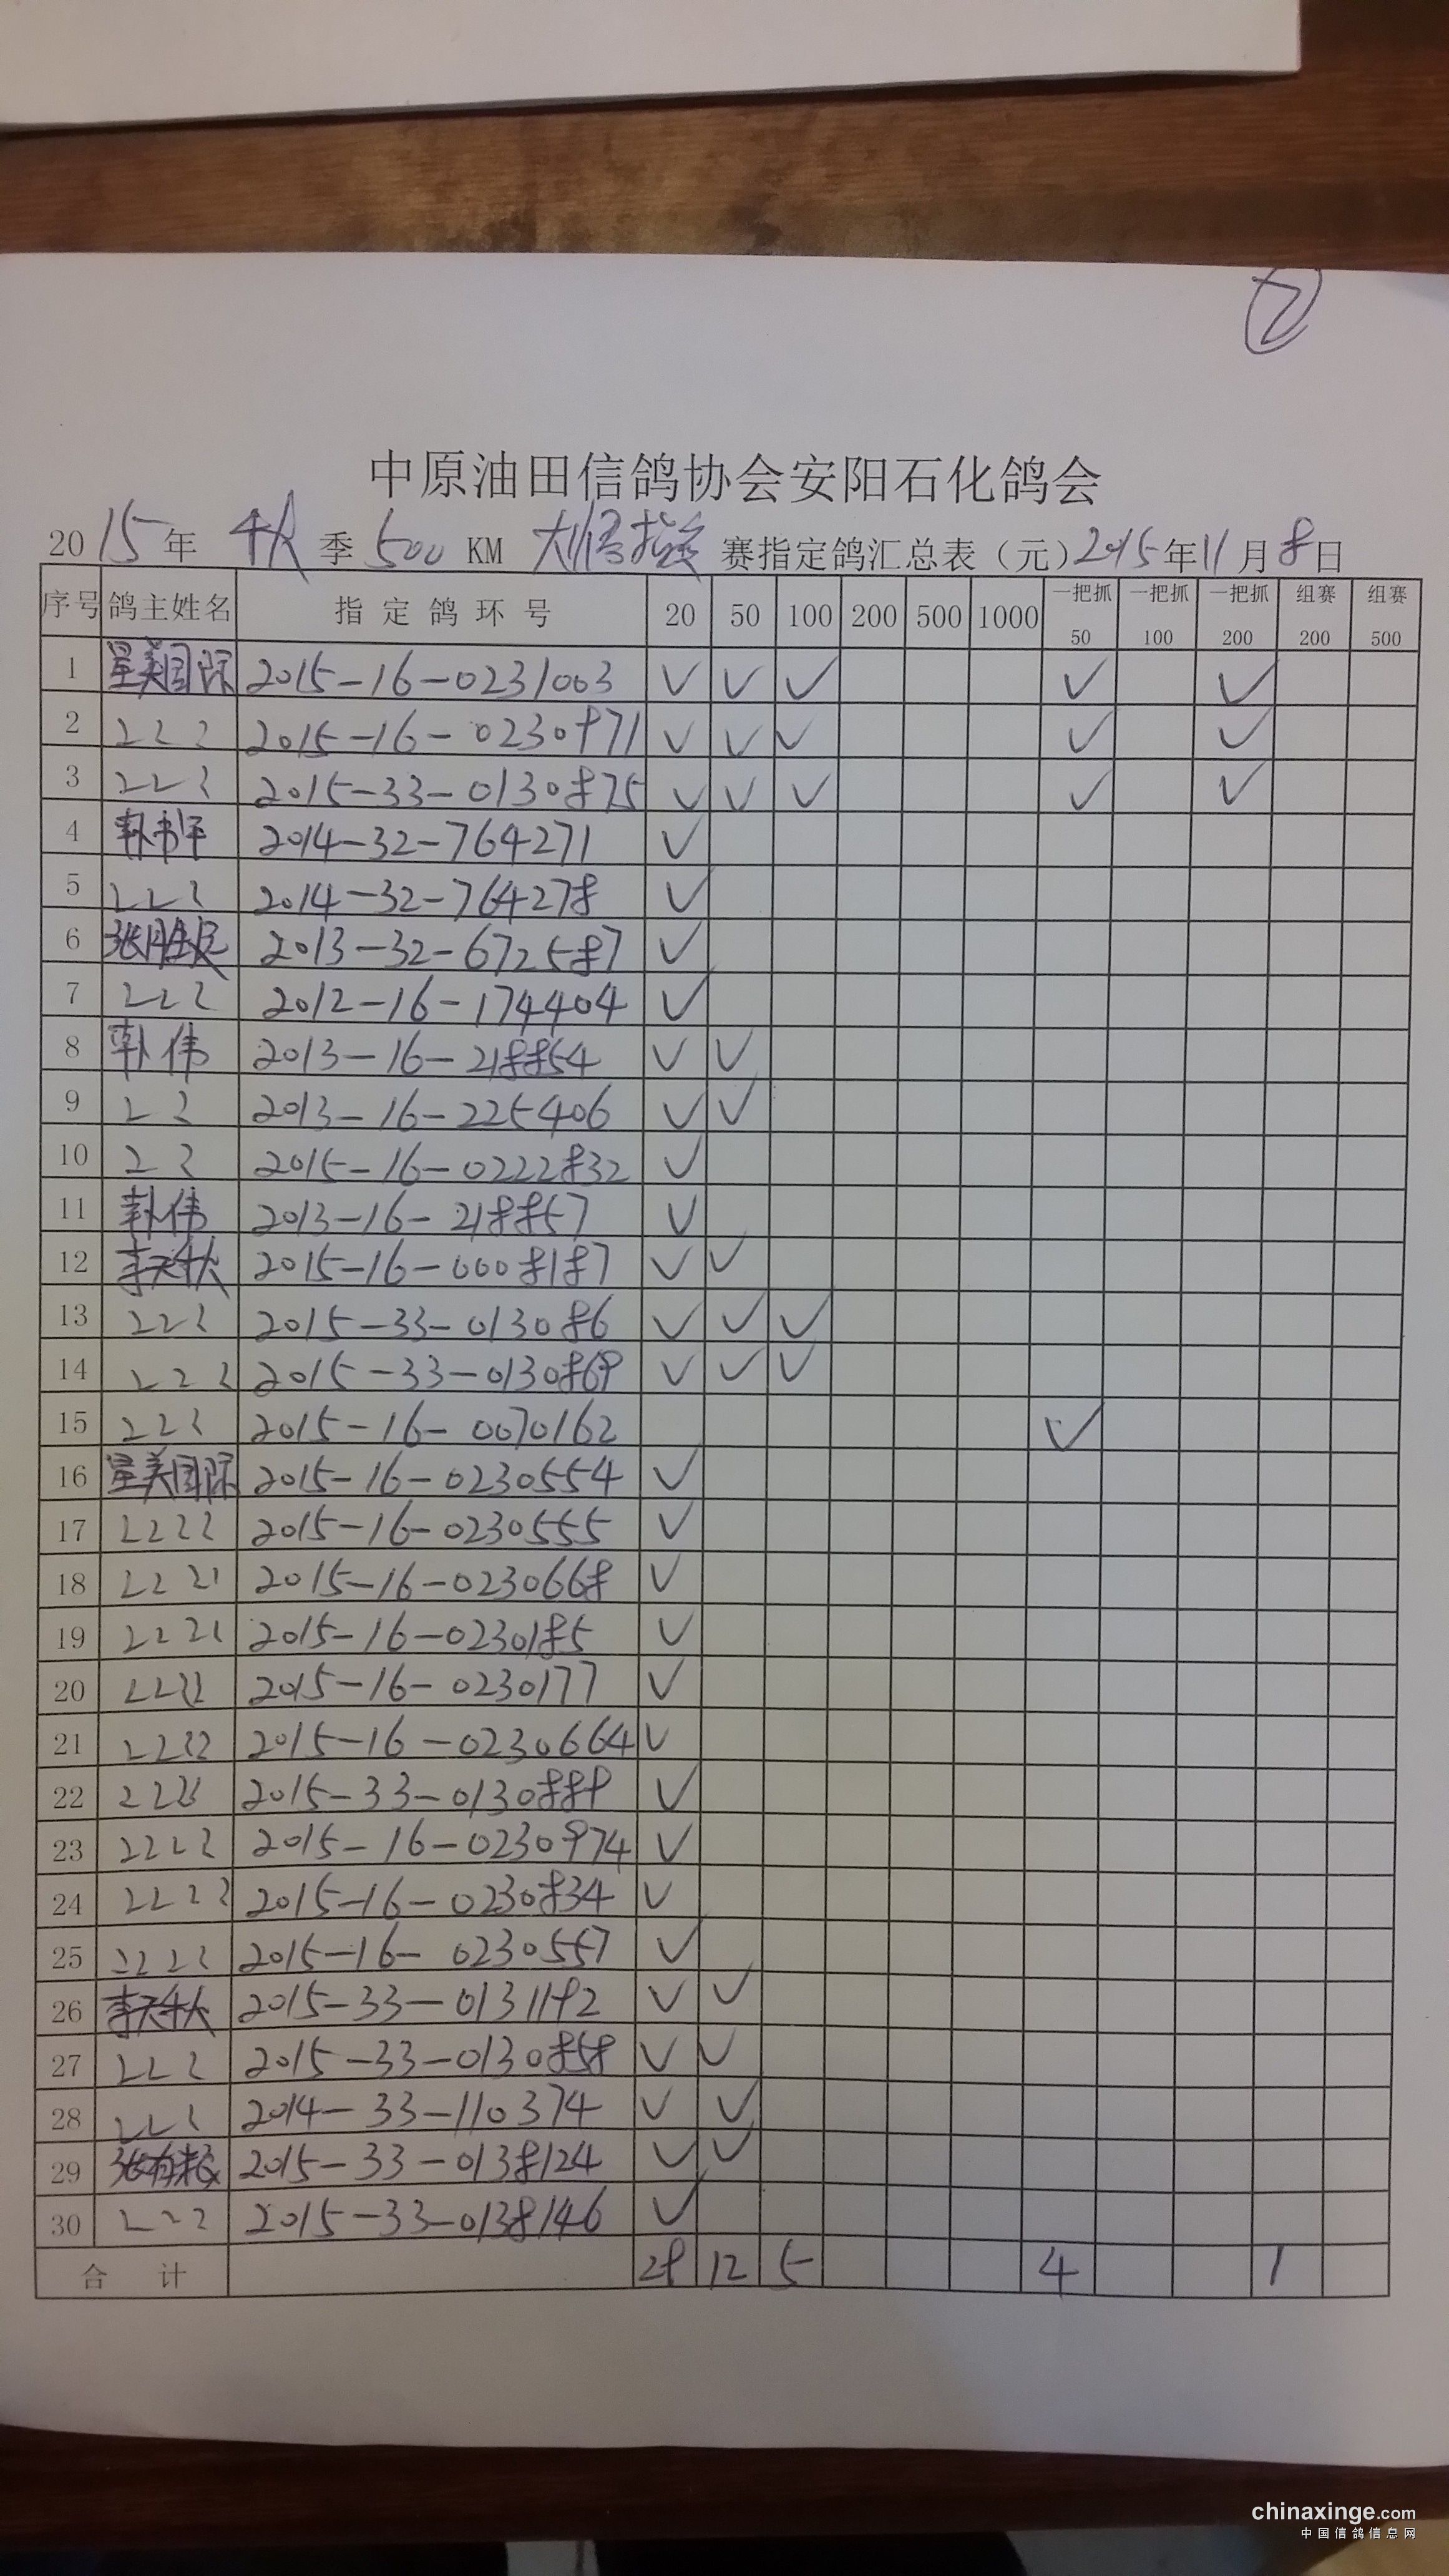 ②
中原油田信鸽协会安阳石化鸽会
2015年 秋 季 500 KM 大悟指定 赛指定鸽汇总表（元）2015年11月8日
序号 鸽主姓名 指定鸽环号 20 50 100 200 500 1000 一把抓50 一把抓100 一把抓200 组赛200 组赛500
1 星美国际 2015-16-0231003 √ √ √ √ √
2 〃 〃 〃 2015-16-0230971 √ √ √ √ √
3 〃 〃 〃 2015-33-0130875 √ √ √ √ √
4 2014-32-764271 √
5 〃 〃 〃 2014-32-764278 √
6 2013-32-672587 √
7 〃 〃 〃 2012-16-174404 √
8 韩伟 2013-16-218854 √ √
9 〃 〃 2013-16-225406 √ √
10 〃 〃 2015-16-0222832 √
11 韩伟 2013-16-218857 √
12 李天秋 2015-16-0008187 √ √
13 〃 〃 〃 2015-33-013086 √ √ √
14 〃 〃 〃 2015-33-0130869 √ √ √
15 〃 〃 〃 2015-16-0070162 √
16 星美国际 2015-16-0230554 √
17 〃 〃 〃 〃 2015-16-0230555 √
18 〃 〃 〃 〃 2015-16-0230668 √
19 〃 〃 〃 〃 2015-16-0230185 √
20 〃 〃 〃 〃 2015-16-0230177 √
21 〃 〃 〃 〃 2015-16-0230664 √
22 〃 〃 〃 〃 2015-33-0130889 √
23 〃 〃 〃 〃 2015-16-0230974 √
24 〃 〃 〃 〃 2015-16-0230834 √
25 〃 〃 〃 〃 2015-16-0230557 √
26 李天秋 2015-33-0131192 √ √
27 〃 〃 〃 2015-33-0130858 √ √
28 〃 〃 〃 2014-33-110374 √ √
29 2015-33-0138124 √ √
30 〃 〃 〃 2015-33-0138146 √
合计 29 12 5 4 1
chinaxinge.com
中国信鸽信息网